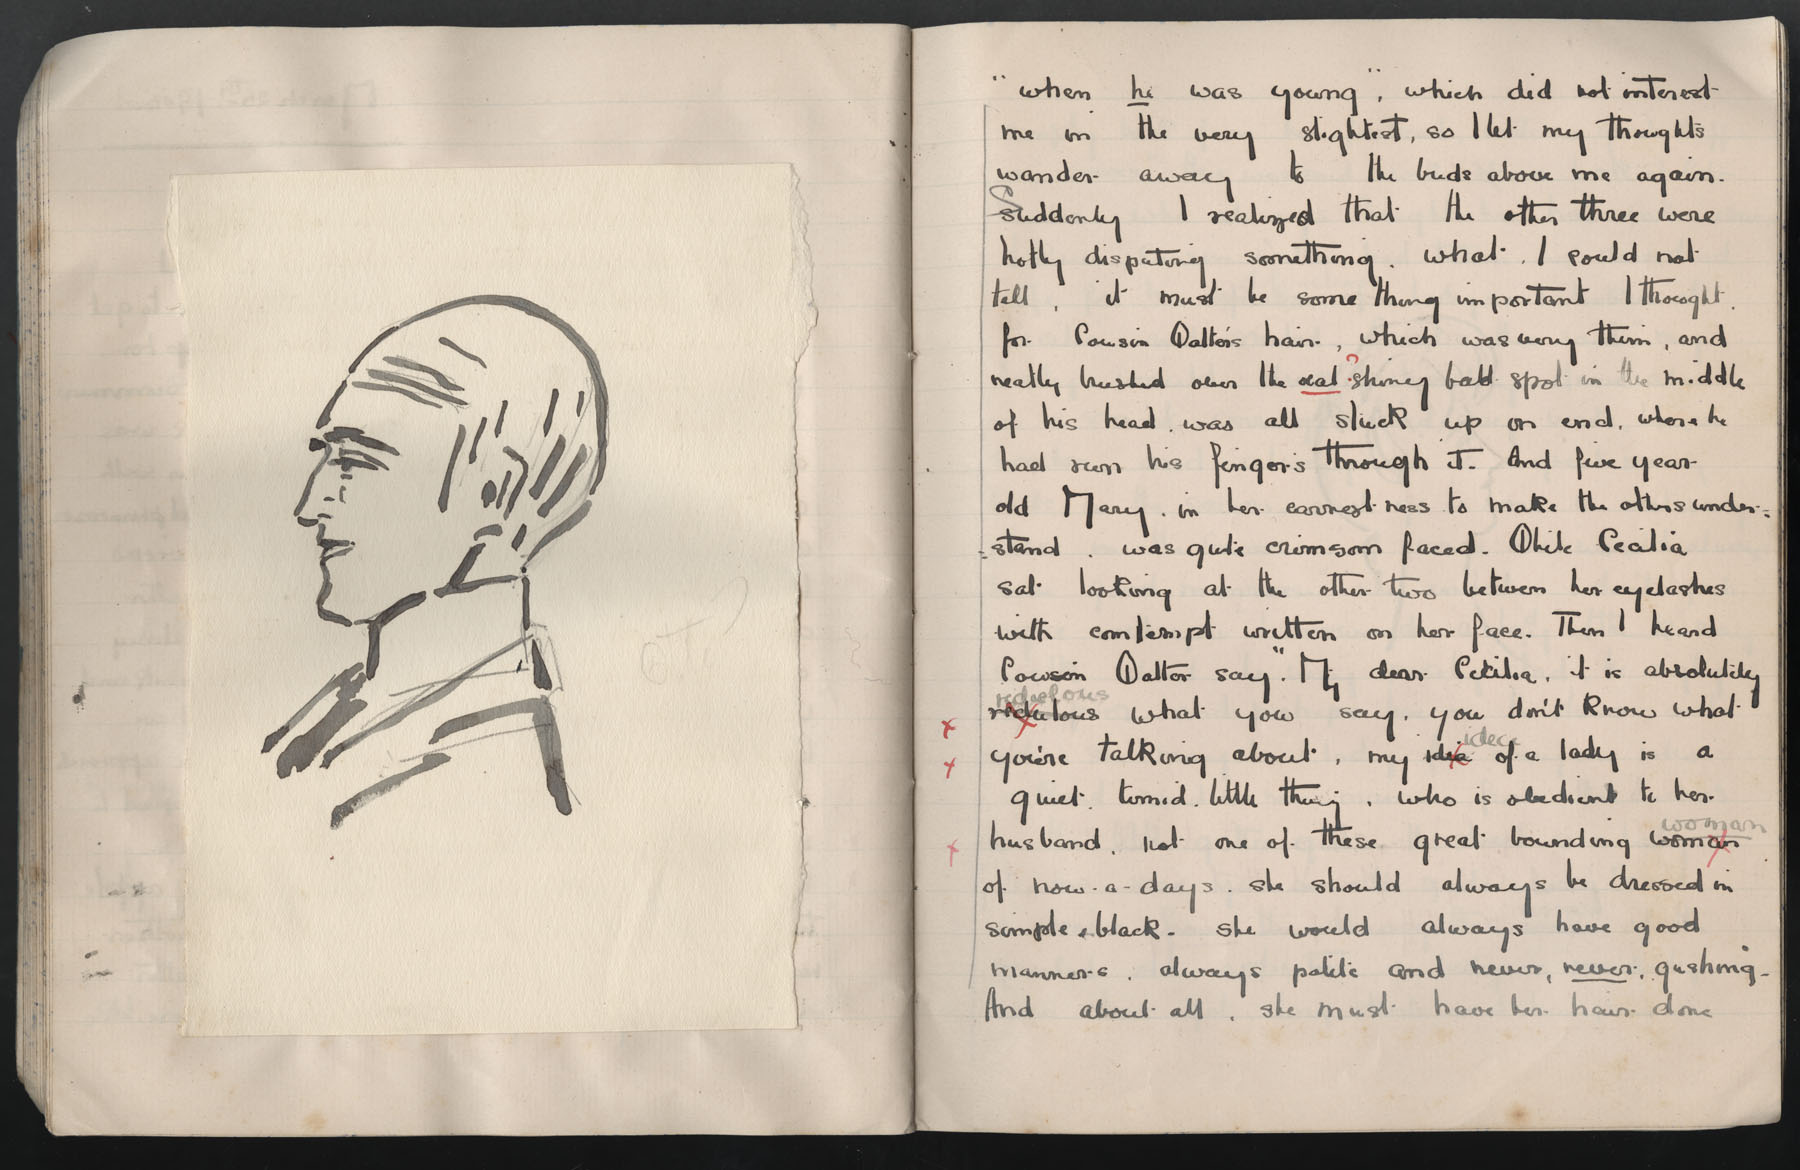 "when he was young", which did not interest
me in the very slightest, so I let my thoughts
wander away to the buds above me again.
Suddenly I realized that the other three were
hotly disputing something. what, I could not
tell, it must be some thing important I thought,
for Cousin Daltor's hair, which was very thin, and
neatly brushed over the shiney bald spot in the middle
of his head, was all stuck up on end, where he
had run his fingers through it. And five year
old Mary, in her earnestness to make the others under=
=stand, was quite crimson faced. While Cecilia
sat looking at the other two between her eyelashes
with contempt written on her face. Then I heard
Cousin Daltor say, "My dear Cecilia, it is absolutely
rediculous
ridulous what you say, you don't know what
idea
you're talking about, my idia of a lady is a
quiet, timid, little thing, who is obedient to her
woman
husband, not one of these great bounding woman
of now-a-days. she should always be dressed in
simple black. she would always have good
manners, always polite and never, never, gushing.
And about all, she must have her hair done